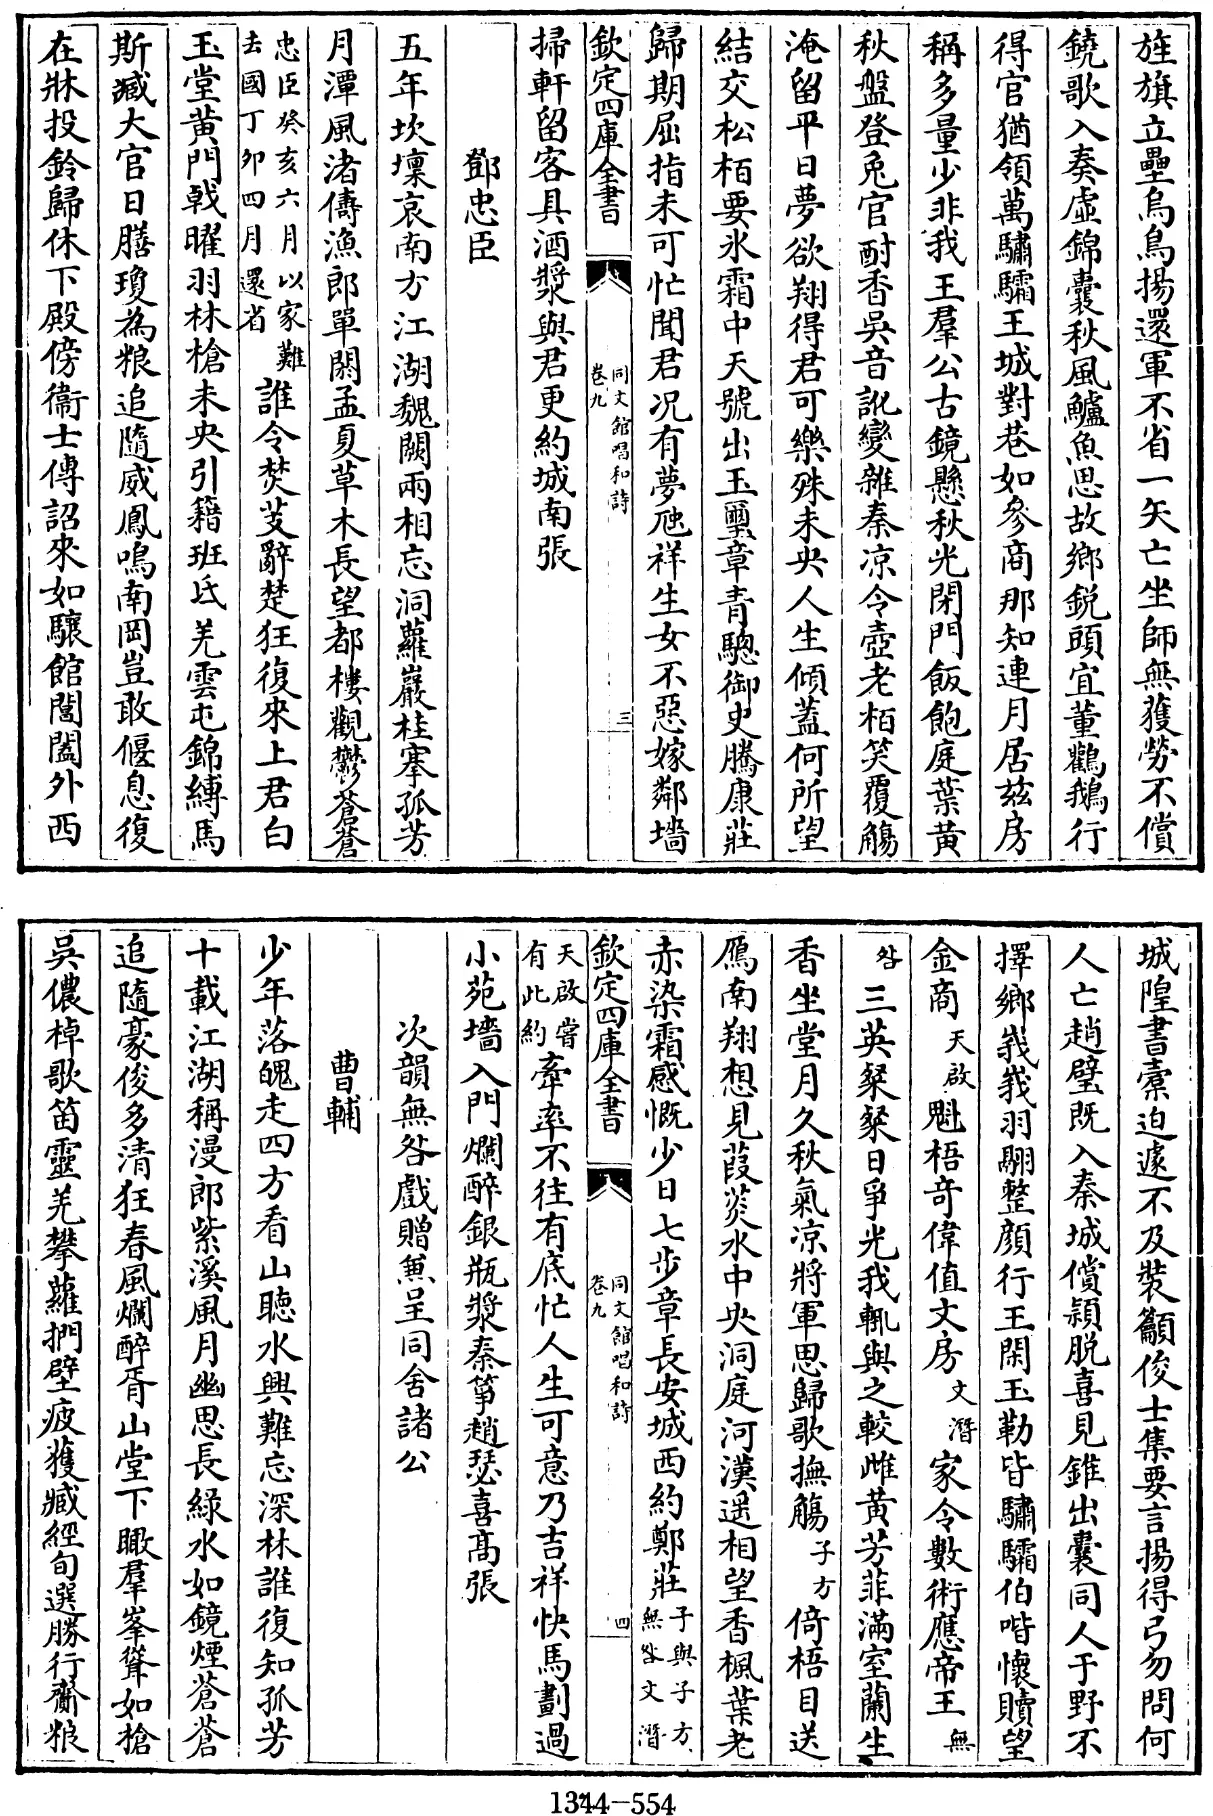 旌旗立壘烏鳥揚還軍不省一矢亡坐師無獲勞不償
鐃歌入奏虛錦囊秋風鱸魚思故鄉銳頭宜董鸛鵝行
得官猶領萬驌驦王城對巷如參商那知連月居兹房
稱多量少非我王羣公古鏡懸秋光閉門飯飽庭葉黃
秋盤登兎官酎香吳音訛變雜秦凉令壺老栢笑覆觴
淹留平日夢欲翔得君可樂殊未央人生傾蓋何所望
結交松栢要氷霜中天號出玉璽章青驄御史騰康莊
歸期屈指未可忙聞君况有夢虺祥生女不惡嫁鄰墻
欽定四庫全書
同文館唱和詩
卷九
三
掃軒留客具酒漿與君更約城南張
鄧忠臣
五年坎壈哀南方江湖魏闕兩相忘洞蘿巖桂搴孤芳
月潭風渚儔漁郎單閼孟夏草木長望都樓觀鬱蒼蒼
忠臣癸亥六月以家難
去國丁卯四月還省
誰令焚芰辭楚狂復來上君白
玉堂黃門戟曜羽林槍未央引籍班氐羌雲屯錦縛馬
斯臧大官日膳瓊為粮追隨威鳳鳴南岡豈敢偃息復
在牀投鈴歸休下殿傍衞士傳詔來如驤館閣闔外西
城隍書橐迫遽不及裝籲俊士集要言揚得弓勿問何
人亡趙璧既入秦城償頴脱喜見錐出囊同人于野不
擇鄉峩峩羽翮整顔行王閑玉勒皆驌驦伯喈懷贖望
金商
天啟
魁梧竒偉值文房
文潛
家令數術應帝王
無
咎
三英粲粲日爭光我輒與之較雌黃芳菲滿室蘭生
香坐堂月久秋氣凉將軍思歸歌撫觴
子方
倚梧目送
鴈南翔想見葭菼水中央洞庭河漢遥相望香楓葉老
赤染霜感慨少日七步章長安城西約鄭莊
子與子方
無咎文潛
欽定四庫全書
同文館唱和詩
卷九
四
天啟嘗
有此約
牽率不往有底忙人生可意乃吉祥快馬劃過
小苑墻入門爛醉銀瓶漿秦箏趙瑟喜高張
次韻無咎戲贈兼呈同舍諸公
曹輔
少年落魄走四方看山聽水興難忘深林誰復知孤芳
十載江湖稱漫郎紫溪風月幽思長綠水如鏡煙蒼蒼
追隨豪俊多清狂春風爛醉胥山堂下瞰羣峯聳如槍
吳儂棹歌笛靈羌攀蘿捫壁疲獲臧經旬選勝行齎粮
1344-554